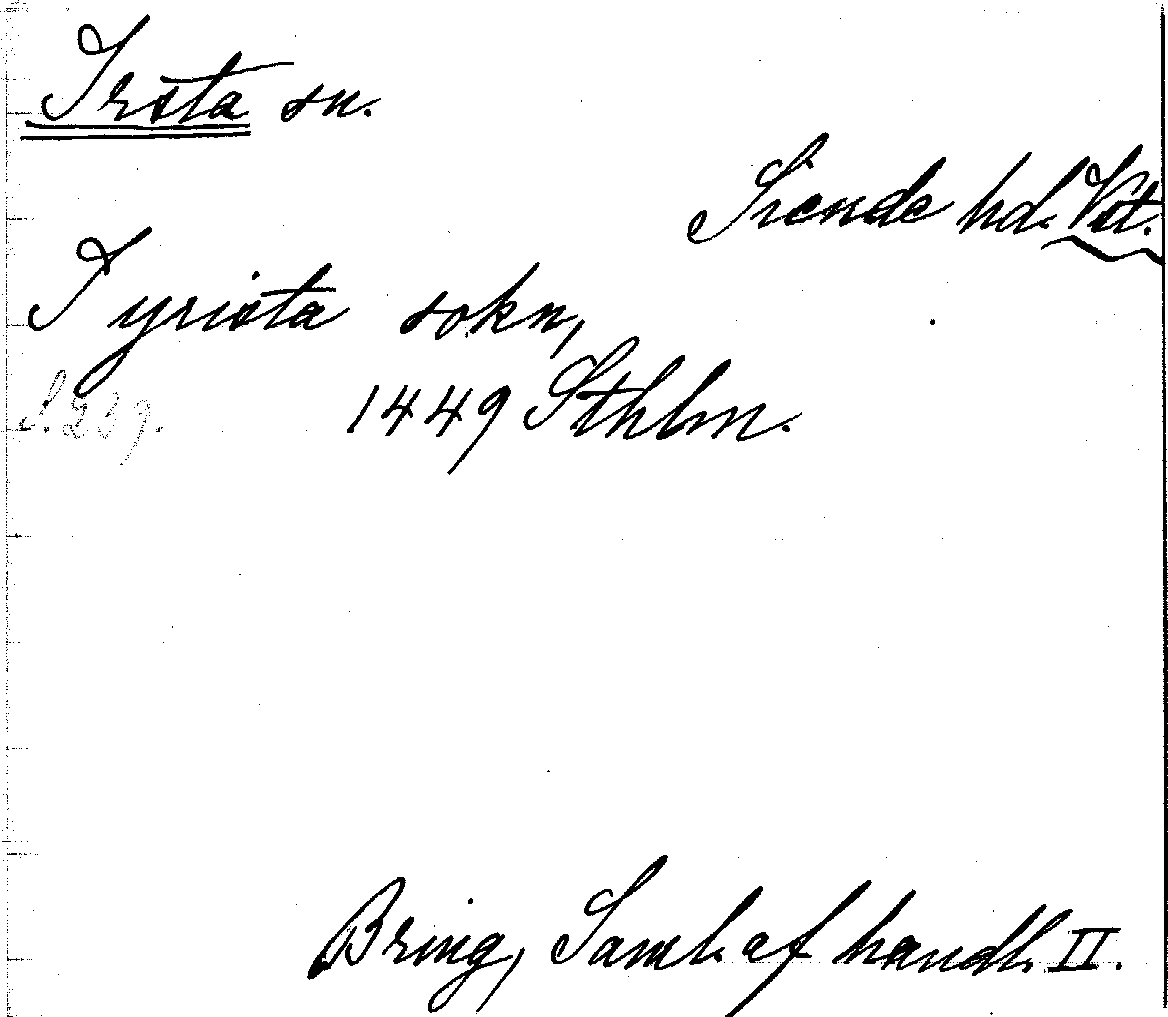 Irsta sn.
Siende hd. Vst.
I yrista sokn,
1449 Sthlm.
S. 239.
Bring, Saml. af handl. II.